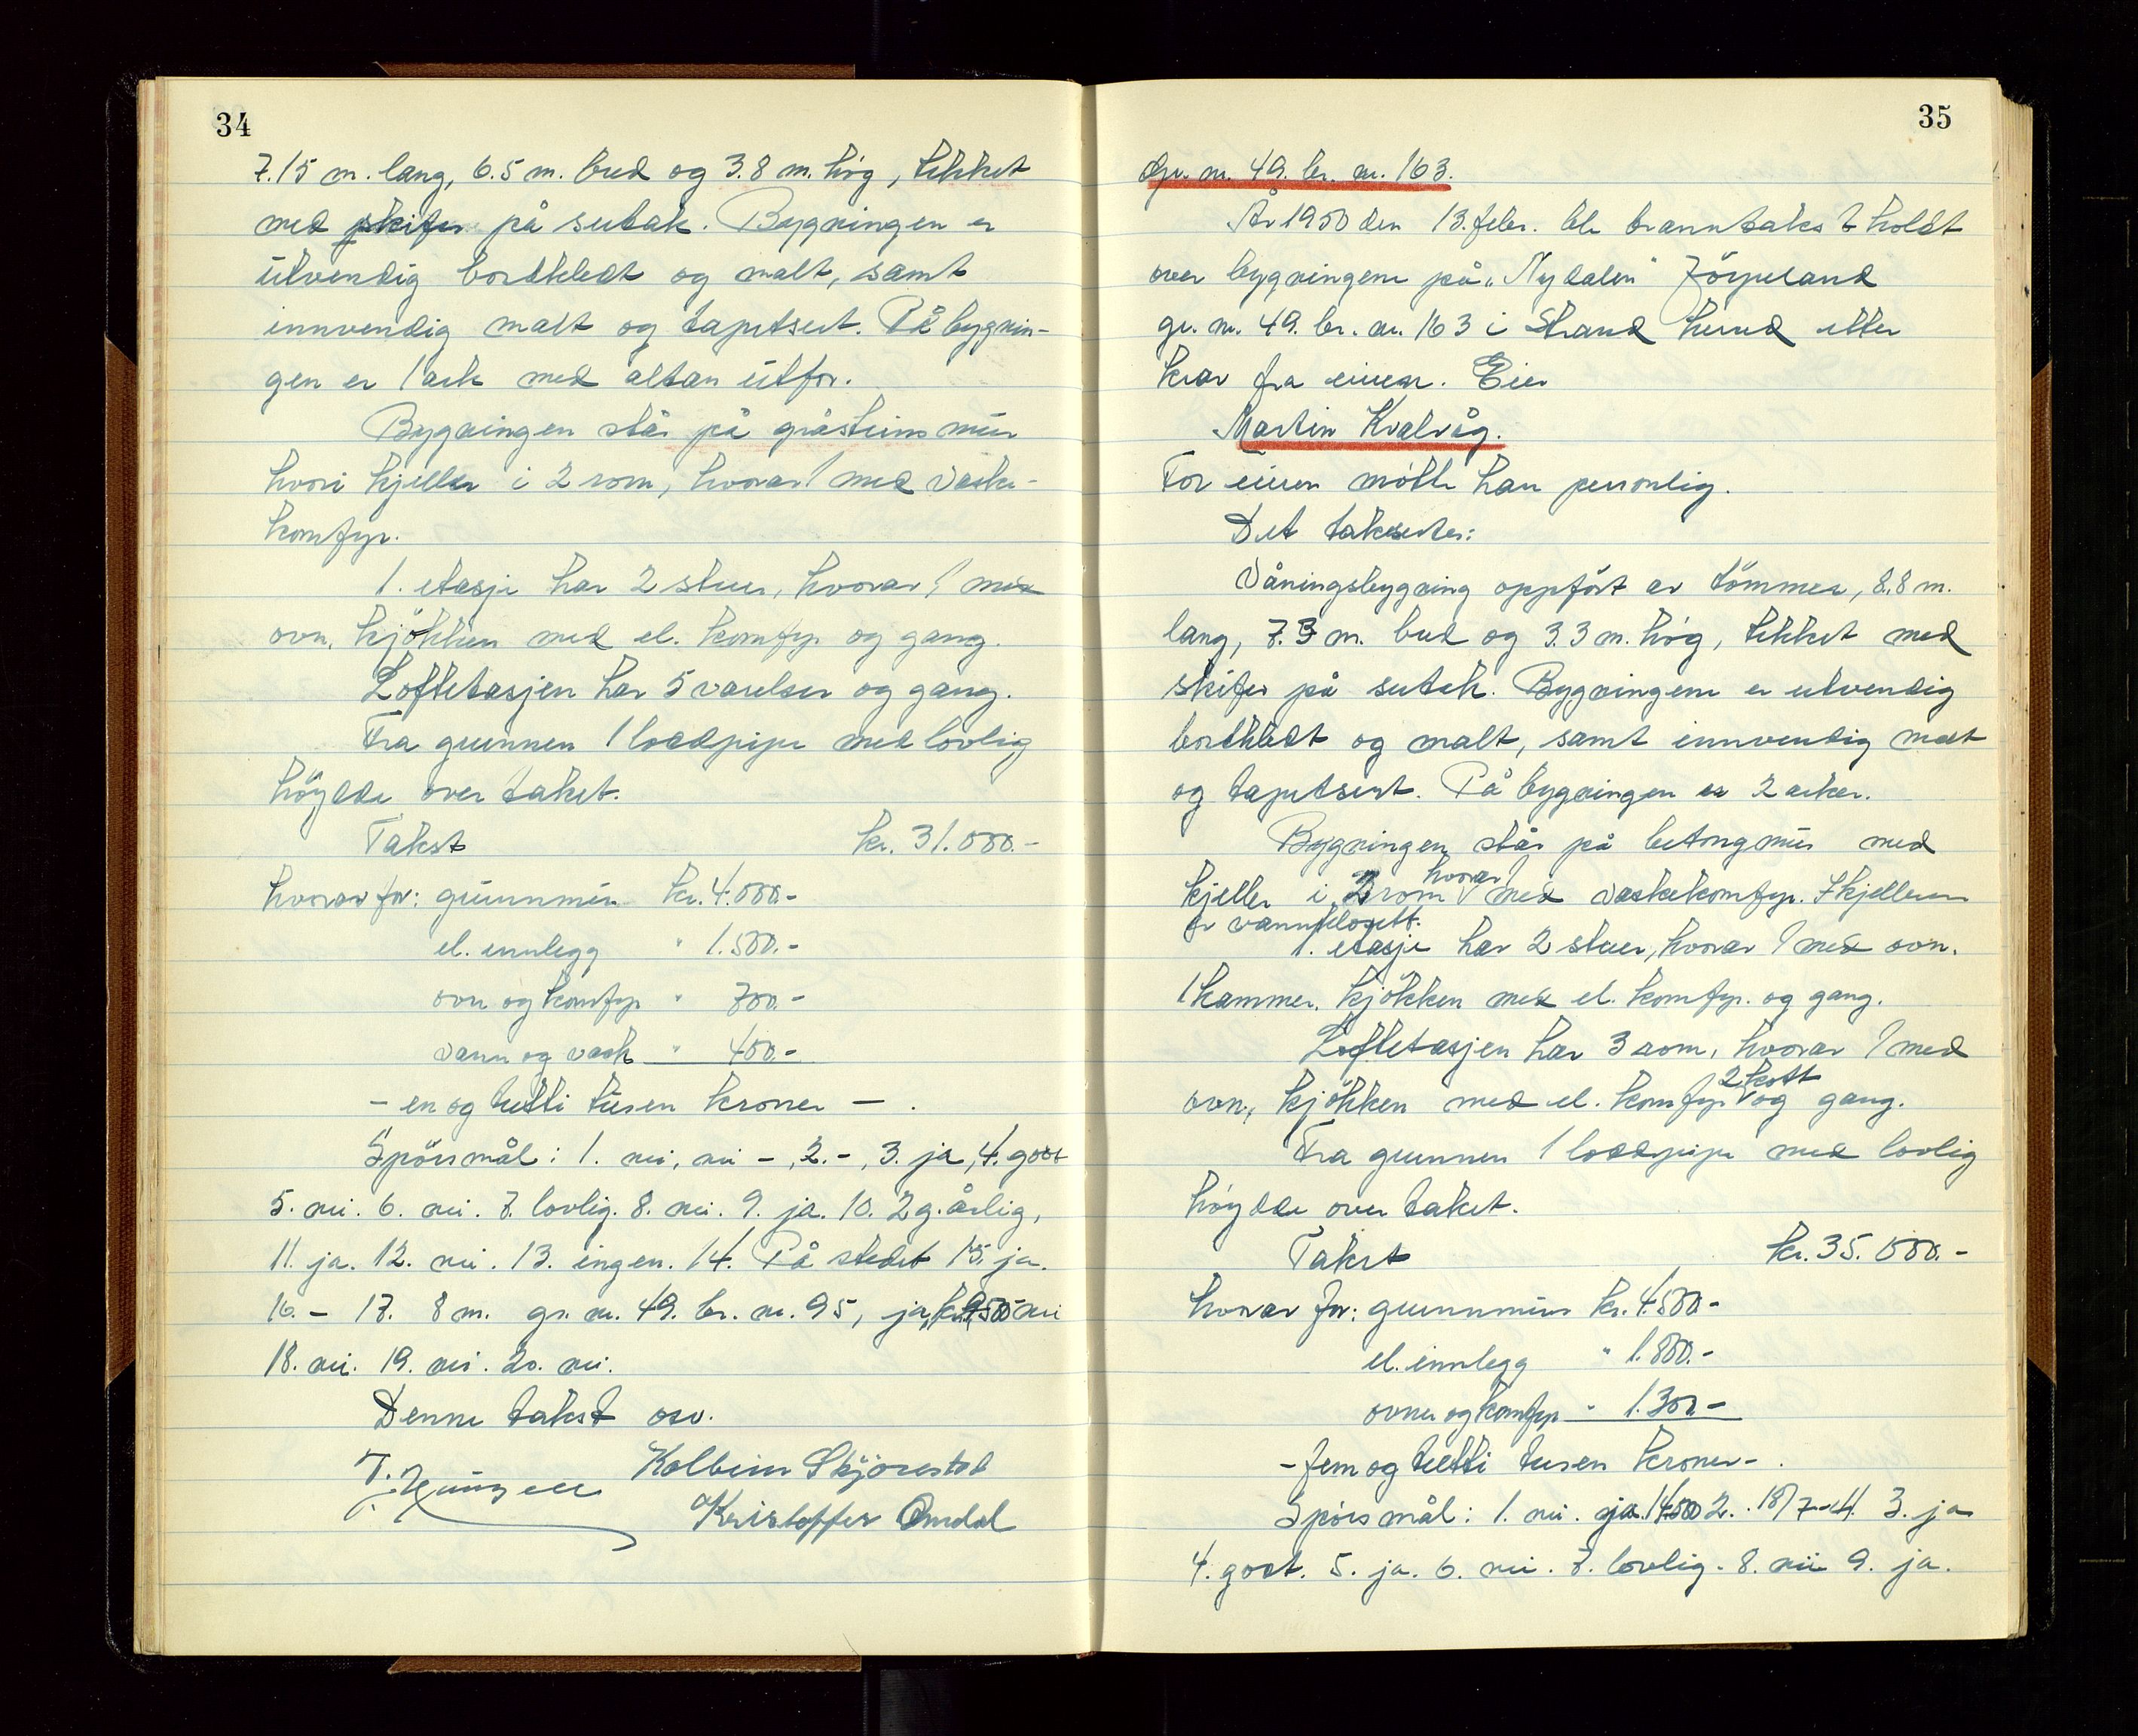 34
7.15 m. lang, 6.5 m. bred og 3.8 m. høg, tekket
med skifer på sutak. Bygningen er
utvendig bordkledt og malt, samt
innvendig malt og tapetsert. På bygnin-
gen er 1 ark med altan utfor.
Bygningen står på gråsteinsmur
hvori kjeller i 2 rom, hvorav 1 med vaske-
komfyr.
1. etasje har 2 stuer, hvorav 1 med
ovn, kjökken med el. komfyr og gang.
Loftetasjen har 5 værelser og gang.
Fra grunnen 1 loddpipe med lovlig
höyde over taket.
Takst kr. 31.000.-
hvorav for: grunnmur kr. 4.000.-
el. innlegg " 1.500.-
ovn og komfyr " 700.-
vann og vask " 400.-
- en og tretti tusen kroner - .
Spörsmål: 1. nei, nei -, 2. -, 3. ja, 4. godt
5. nei. 6. nei. 7. lovlig. 8. nei. 9. ja. 10. 2 g. årlig,
11. ja. 12. nei. 13. ingen. 14. På stedet 15. ja.
16. - 17. 8 m. gr. nr. 49. br. nr. 95, ja, nei
18. nei. 19. nei. 20. nei.
Denne takst osv.
Kolbein Skjørestad
Kristoffer Omdal
35
Gr. nr. 49. br. nr. 163.
År 1950 den 13. febr. ble branntakst holdt
over bygningene på „Nydalen" Jörpeland
gr. nr. 49. br. nr. 163 i Strand herred etter
krav fra eieren. Eier
Martin Kvalvåg.
For eieren møtte han personlig.
Det takseres:
Våningsbygning oppfört av tömmer, 8.8 m.
lang, 7.3 m. bred og 3.3 m. høg, tekket med
skifer på sutak. Bygningene er utvendig
bordkledt og malt, samt innvendig malt
og tapetsert. På bygningen er 2 arker.
Bygningen står på betongmur med
kjeller i 3 rom hvorav 1 med vaskekomfyr. I kjelleren
er vannklosett.
1. etasje har 2 stuer, hvorav 1 med ovn.
1 kammer, kjökken med el. komfyr. og gang.
Loftetasjen har 3 rom, hvorav 1 med
ovn, kjökken med el. komfyr 2 kott og gang.
Fra grunnen 1 loddpipe med lovlig
høyde over taket.
Takst kr. 35.000.-
hvorav for: grunnmur kr. 4.500-
el. innlegg " 1.800.-
ovner og komfyr " 1.300.-
- fem og tretti tusen kroner - .
Spörsmål: 1. nei. ja. 14500 2. 18/7-41. 3. ja
4. godt. 5. ja. 6. nei. 7. lovlig. 8. nei 9. ja.